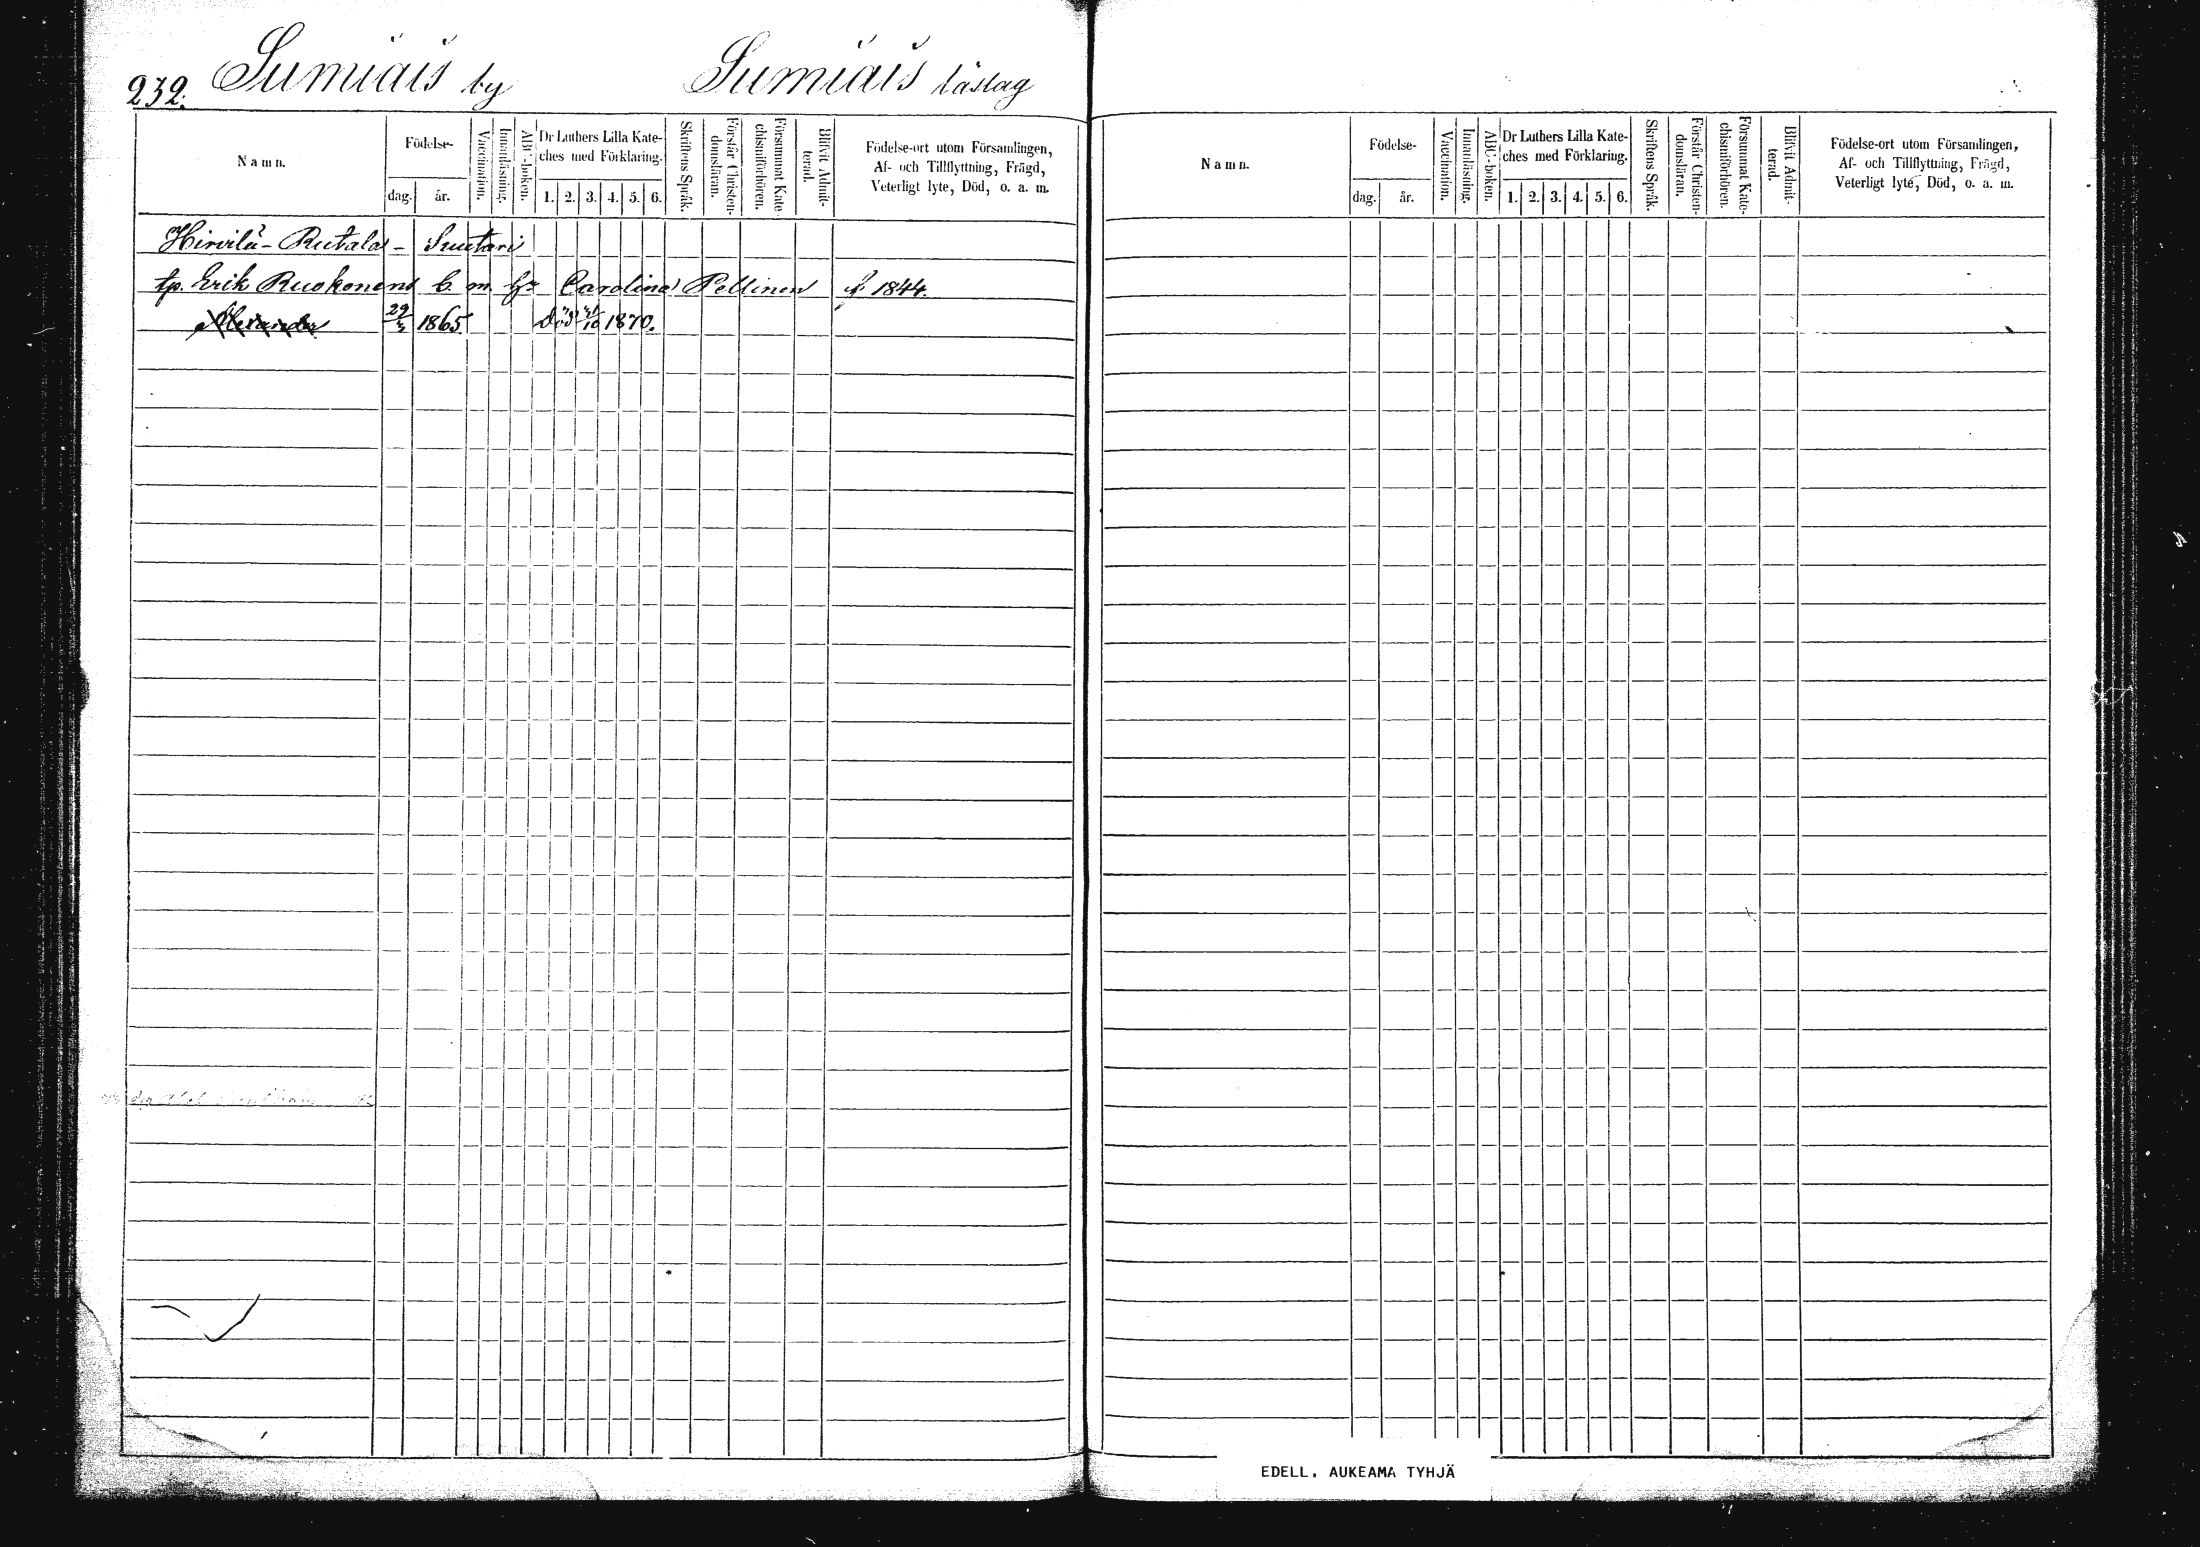 232. Sumiais by Sumiais läslag
Namn.
Födelse-
dag. år.
Vaccination.
Innanläsning.
ABC-boken.
Dr Luthers Lilla Kate-
ches med Förklaring.
1. 2. 3. 4. 5. 6.
Skriftens Språk.
Förstår Christen-
domsläran.
Försummat Kate-
chismiförhören.
Blifvit Admit-
terad.
Födelse-ort utom Församlingen,
Af- och Tillflyttning, Frägd,
Veterligt lyte, Död, o. a. m.
Hirvilä - Rutala - Suutari
tp. Erik Ruokonens Carolina Pellinen f. 1844.
Alexander 1865. död 1870.
Namn.
Födelse-
dag. år.
Vaccination.
Innanläsning.
ABC-boken.
Dr Luthers Lilla Kate-
ches med Förklaring.
1. 2. 3. 4. 5. 6.
Skriftens Språk.
Förstår Christen-
domsläran.
Försummat Kate-
chismiförhören.
Blifvit Admit-
terad.
Födelse-ort utom Församlingen,
Af- och Tillflyttning, Frägd,
Veterligt lyte, Död, o. a. m.
EDELL. AUKEAMA TYHJÄ